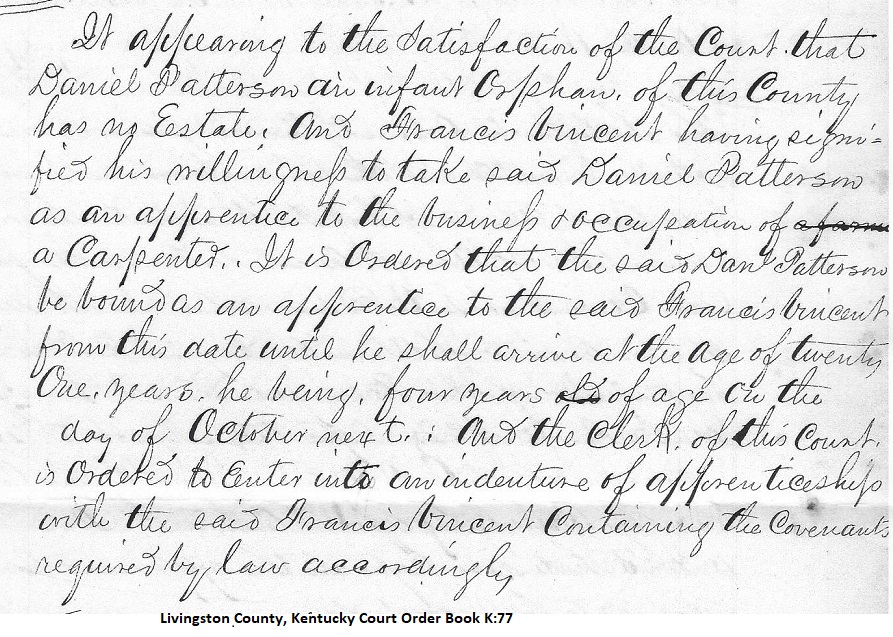 It appearing to the Satisfaction of the Court. that
Daniel Patterson an infant Orphan. of this County
has no Estate. And Francis Vincent having signi=
fied his willingness to take said Daniel Patterson
as an apprentice to the business & occupation of a farme
a Carpenter.. It is Ordered that the said Danl Patterson
be bound as an apprentice to the said Francis Vincent
from this date until he shall arrive at the age of twenty
One. years. he being. four years old of age on the
day of October next. : And the Clerk. of this Court.
is Ordered to Enter into an indenture of apprenticeship
with the said Francis Vincent Containing the Covenants
required by law accordingly
Livingston County, Kentucky Court Order Book K:77